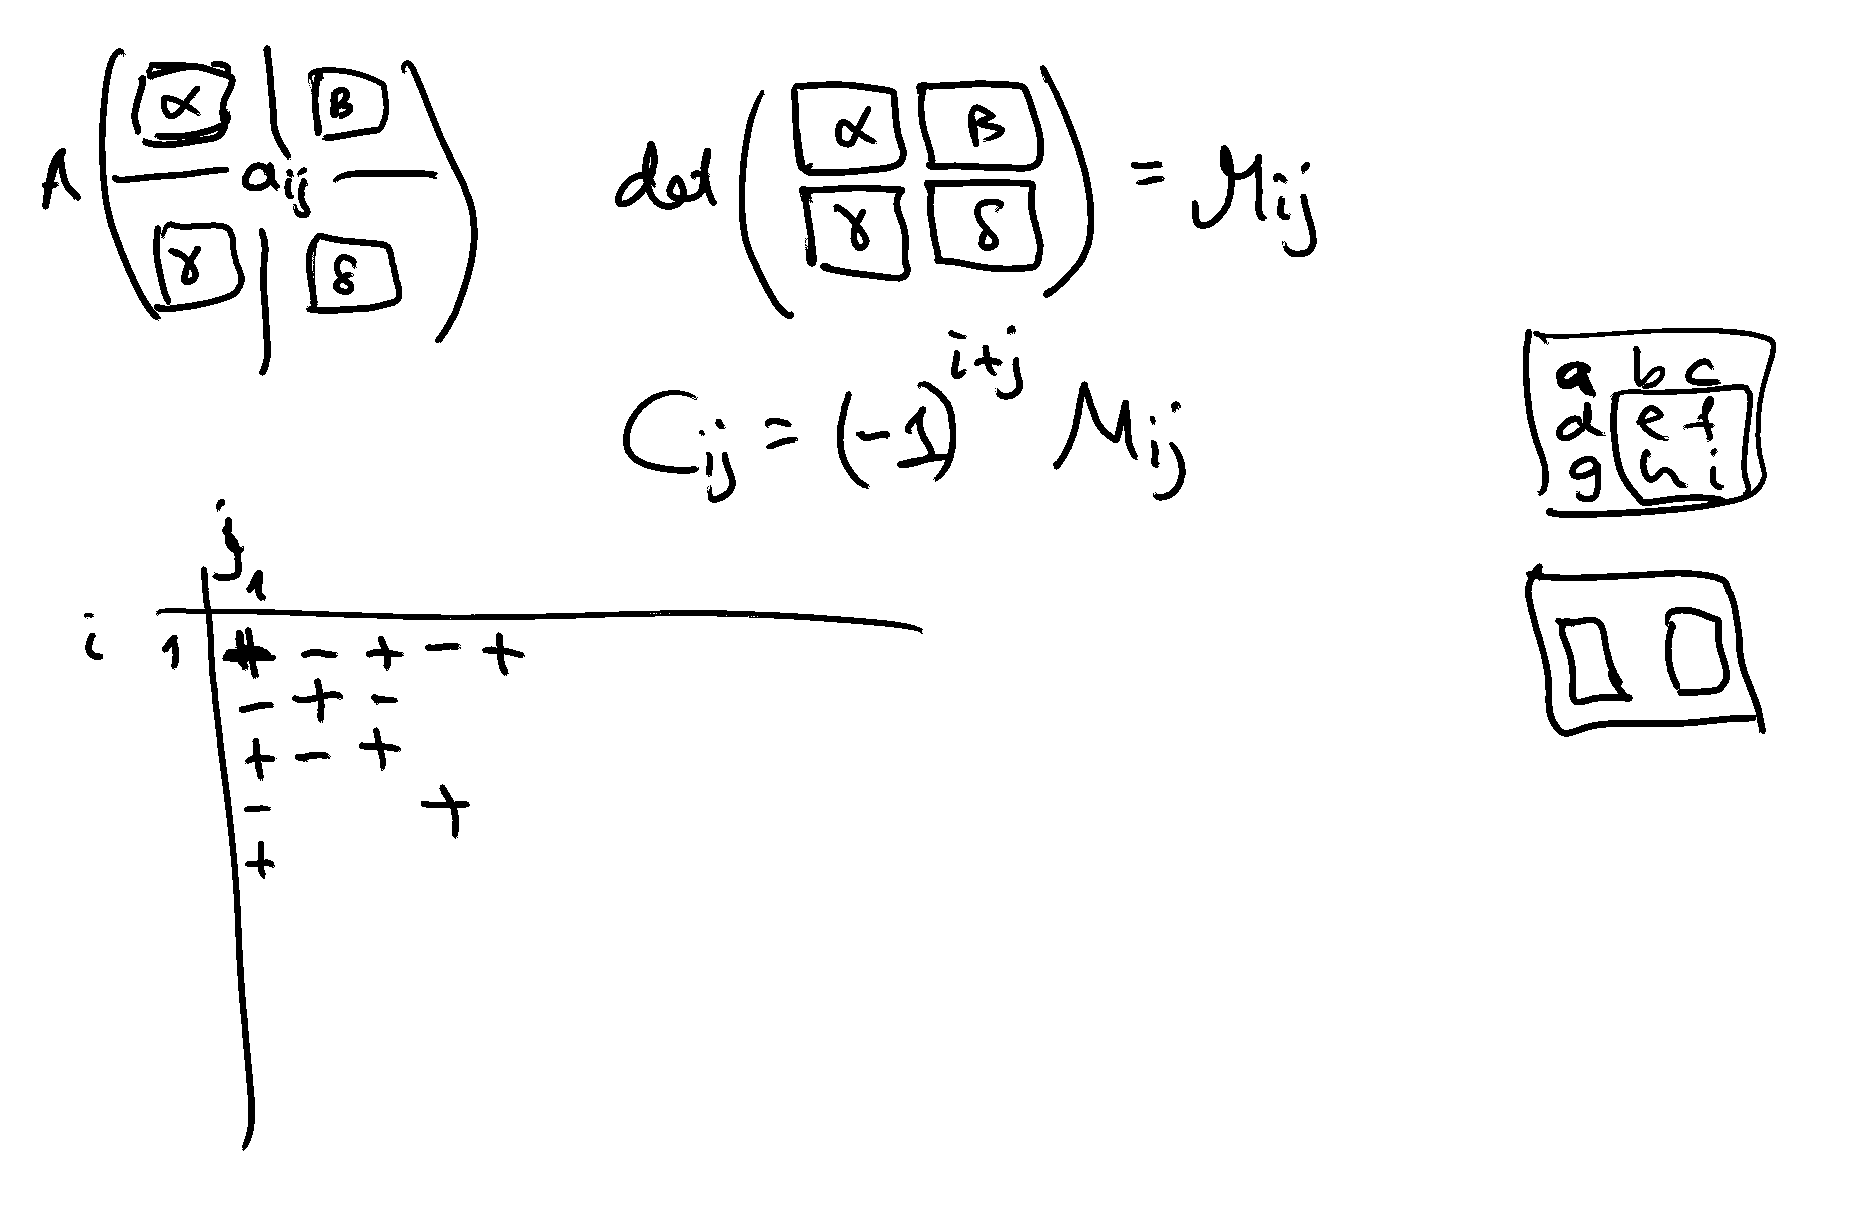 A ( α | β
— a_ij —
γ | δ )
det ( α β
γ δ ) = M_ij
C_ij = (-1)^{i+j} M_ij
a b c
d e f
g h i
j
1
i 1 + - + - +
- + -
+ - +
- +
+